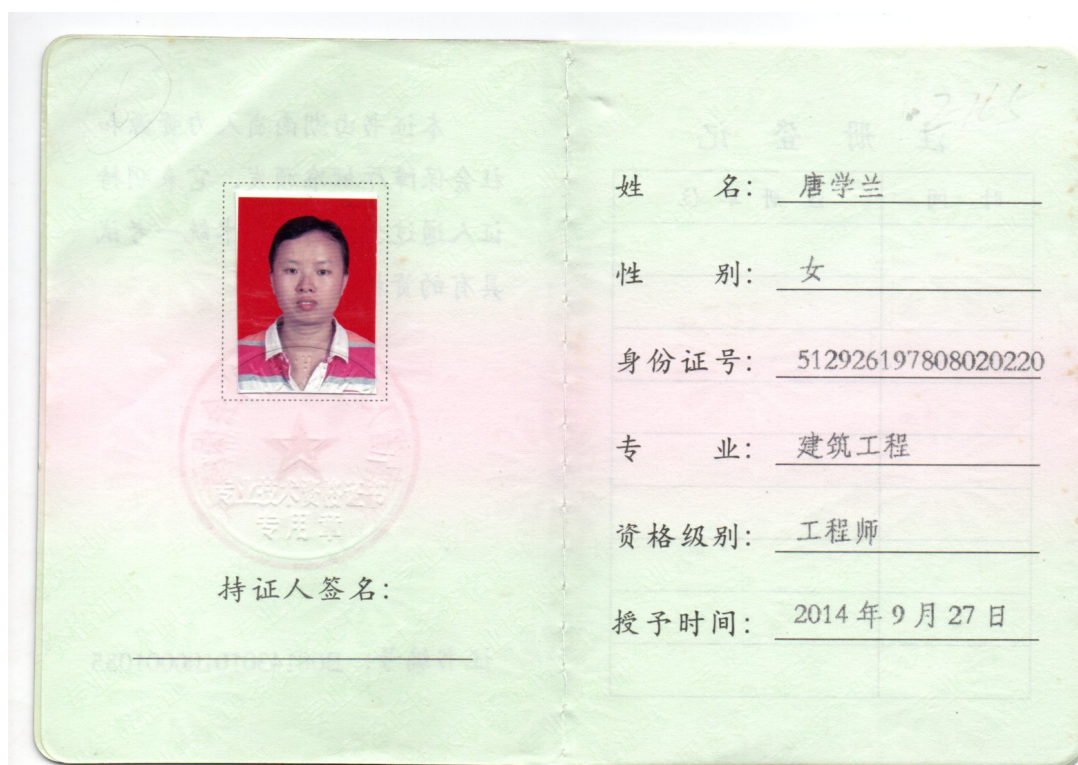 专业技术资格证书
专用章
持证人签名：
姓 名： 唐学兰
性 别： 女
身份证号： 512926197808020220
专 业： 建筑工程
资格级别： 工程师
授予时间： 2014 年 9 月 27 日